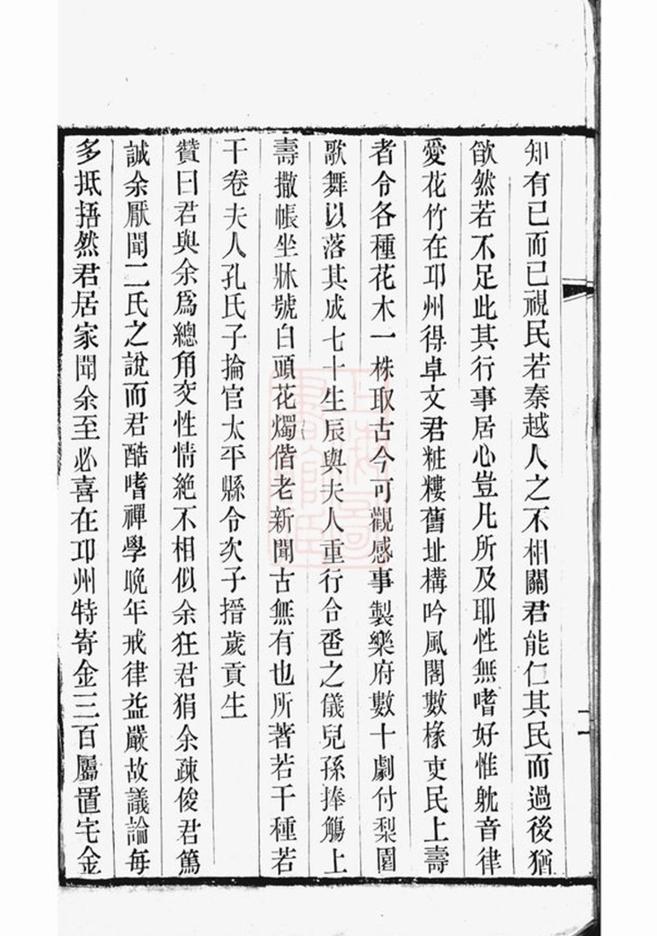 知有已而已視民若秦越人之不相關君能仁其民而過後猶
欿然若不足此其行事居心豈凡所及耶性無嗜好惟躭音律
愛花竹在邛州得卓文君粧樓舊址構吟風閣數椽吏民上壽
者令各種花木一株取古今可觀感事製樂府數十劇付梨園
歌舞以落其成七十生辰與夫人重行合巹之儀兒孫捧觴上
壽撒帳坐牀號白頭花燭偕老新聞古無有也所著若干種若
干卷夫人孔氏子掄官太平縣令次子搢歲貢生
贊曰君與余爲總角交性情絶不相似余狂君狷余疎俊君篤
誠余厭聞二氏之說而君酷嗜禪學晚年戒律益嚴故議論每
多抵捂然君居家聞余至必喜在邛州特寄金三百屬置宅金
二